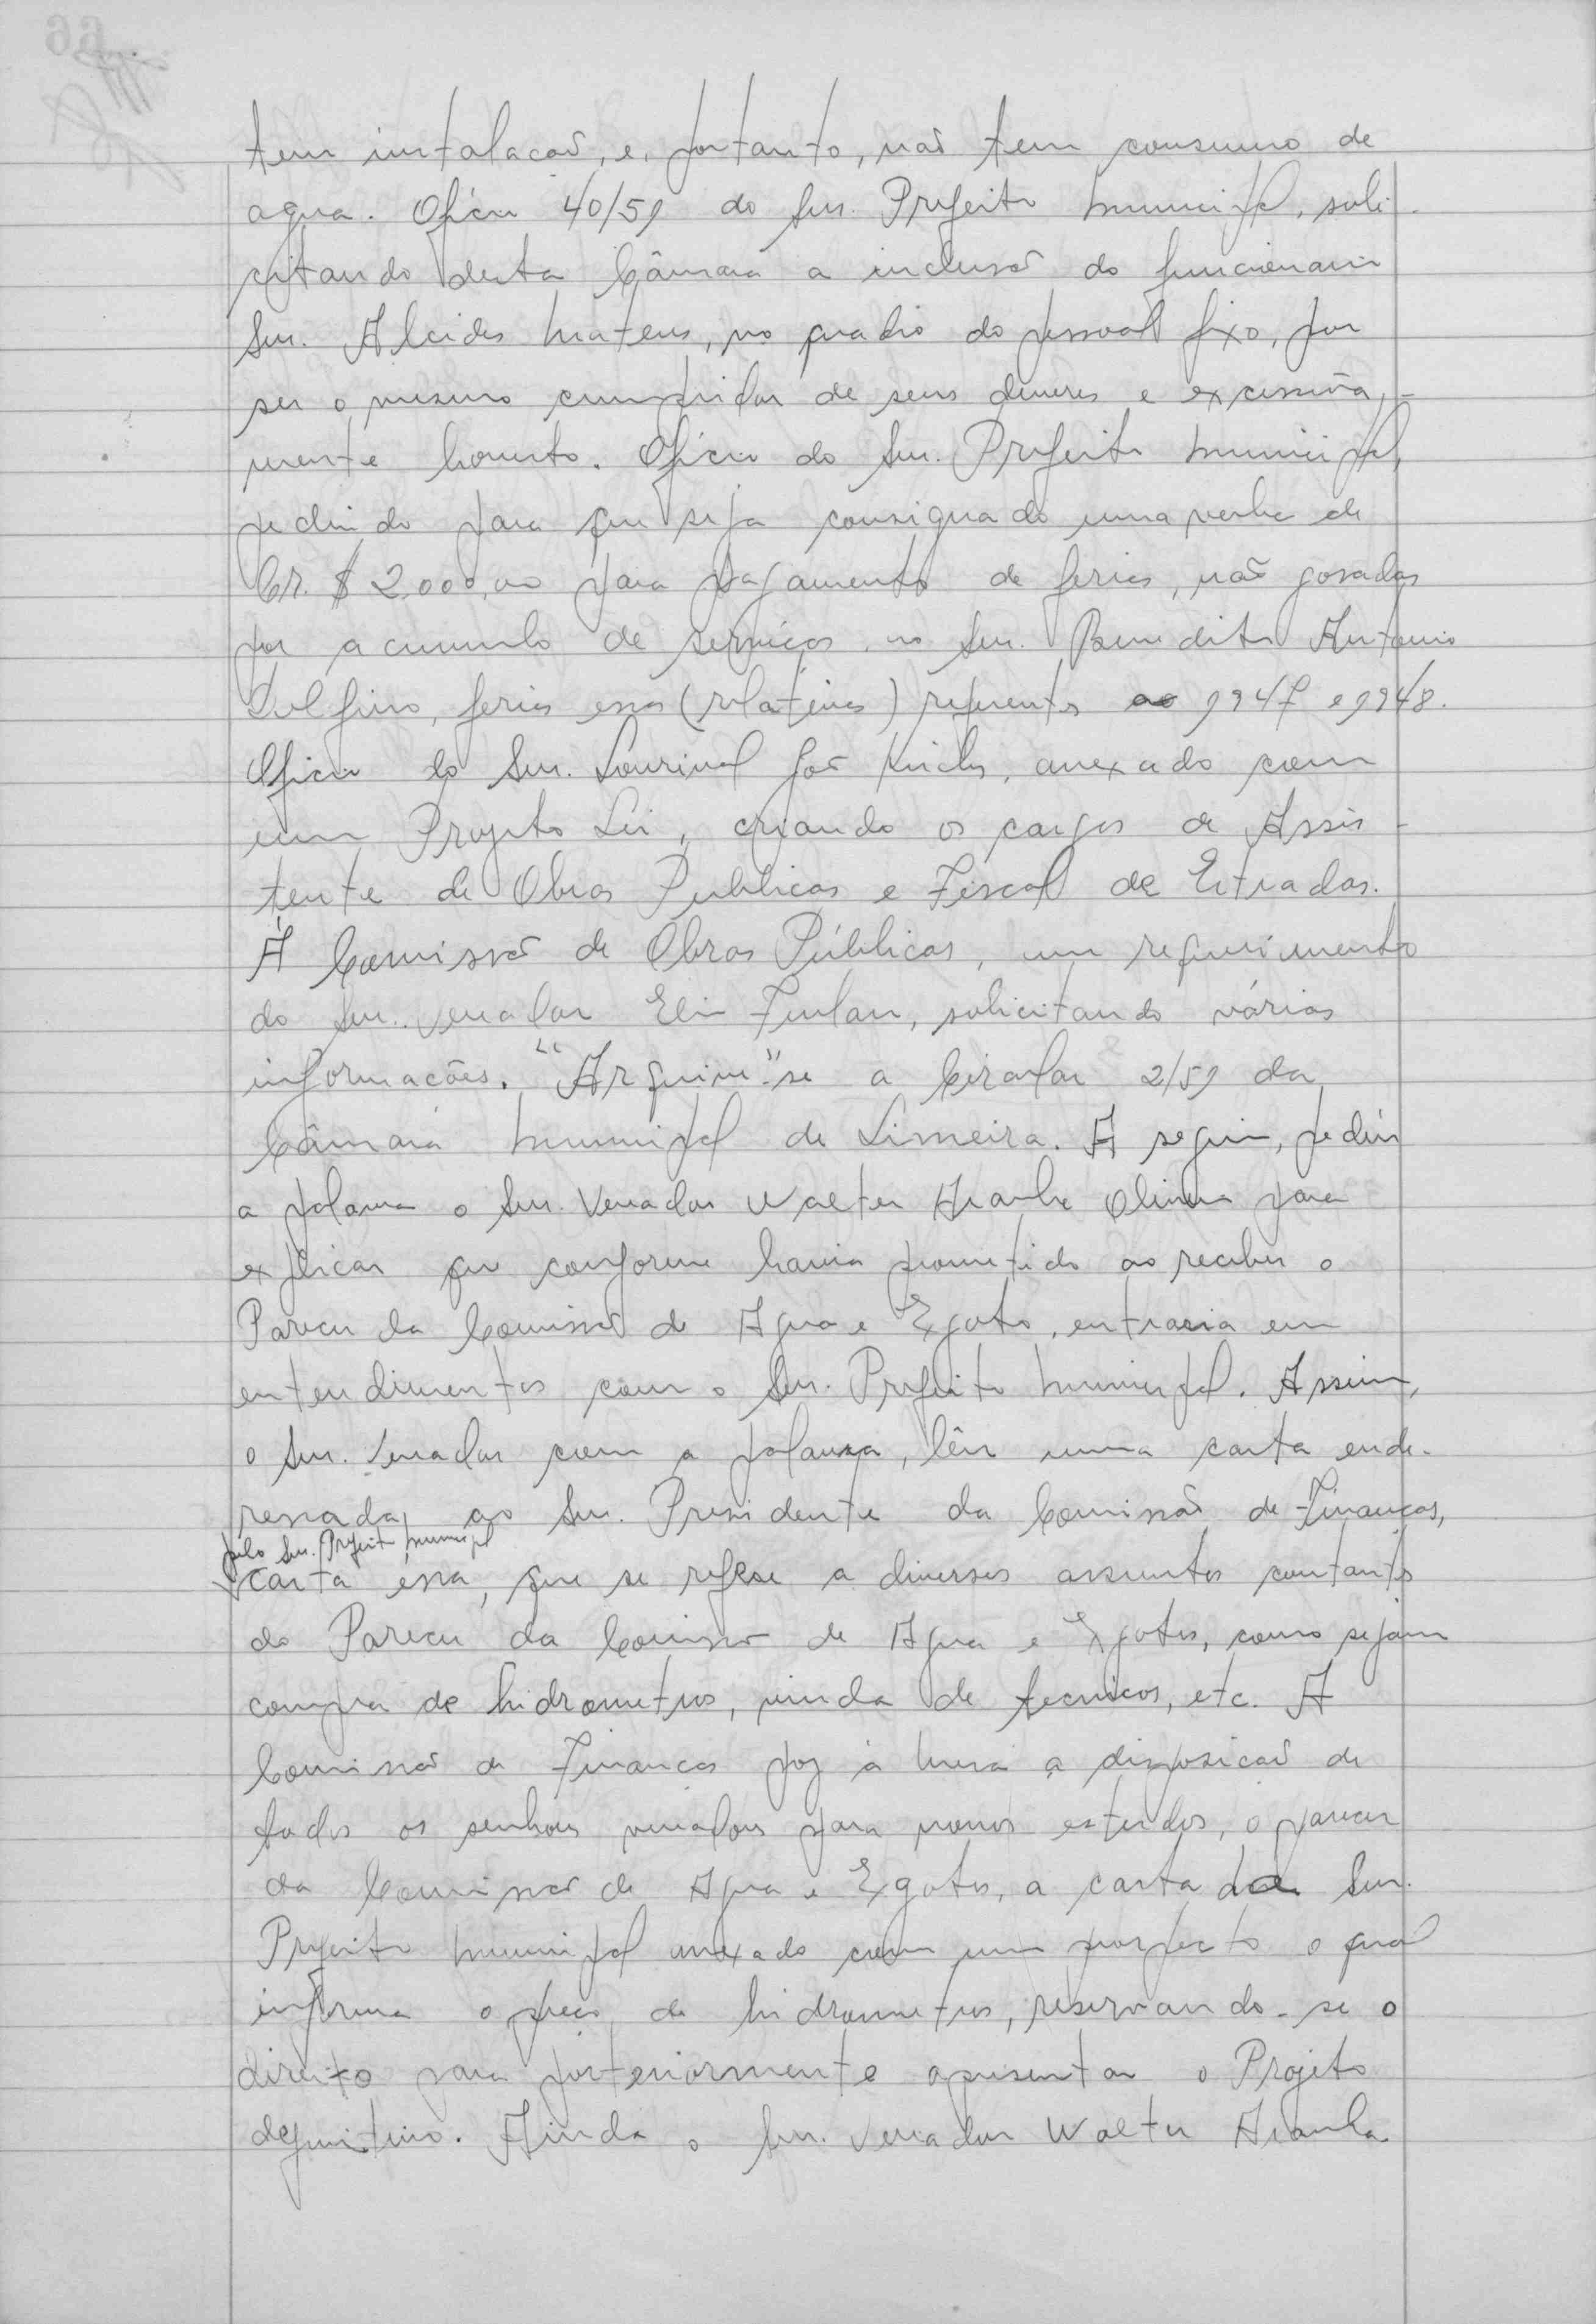 tem instalacaõ, e, portanto, naõ tem consumo de
agua. Oficio 40/59 do Snr. Prefeito Municipal, soli-
citando desta Câmara a inclusaõ do funcionario
Snr. Alcides Mateus, no quadro do pessoal fixo, por
ser o mesmo cumpridor de seus deveres e excessiva-
mente honesto. Ofício do Snr. Prefeito Municipal,
pedindo para que seja consignado uma verba de
Cr. $ 2.000,00 para pagamento de ferias, não gosadas
por acumulo de serviços, ao Snr. Benedito Antonio
Delfino, ferias essas (relativas) referentes ao 1947 e 1948.
Oficio do Snr. Lourival João, anexado com
um Projeto Lei, criando os cargos de Assis-
tente de Obras Publicas e Fiscal de Estradas.
À Comissaõ de Obras Públicas, um requerimento
do Snr. Vereador Elio Furlan, solicitando várias
informacões. "Arquive"-se a Circular 2/59 da
Câmara Municipal de Limeira. A seguir, pediu
a palavra o Snr. Vereador Walter Aranha Oliveira para
explicar que conforme havia prometido ao receber o
Parecer da Comissaõ de Agua e Exgoto, entraria em
entendimentos com o Snr. Prefeito Municipal. Assim,
o Snr. Vereador com a palavra, lêu uma carta ende-
ressada ao Snr. Presidente da Comissão de Financas,
pelo Snr. Prefeito Municipal
carta essa, que se refere a diversos assuntos contants
do Parecer da Comissaõ de Agua e Exgotos, como sejam
compra de hidrometros, vinda de tecnicos, etc. A
Comissaõ de Financas poz à mesa a disposicaõ de
todos os senhores vereadores para novos estudos, o parecer
da Comissaõ de Agua e Exgotos, a carta do Snr.
Prefeito Municipal anexado com um prospecto o qual
informa o preço de hidrometros, reservando-se o
direito para posteriormente apresentar o Projeto
definitivo. Ainda o Snr. Vereador Walter Aranha